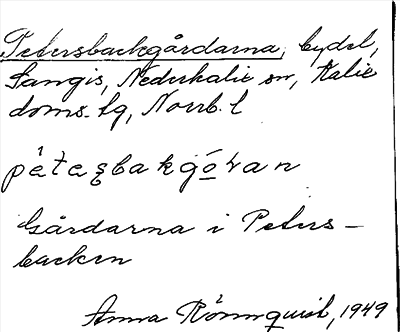 Petersbackgårdarna, bydel,
Sangis, Nederkalix sn, Kalix
doms. lg, Norrb. l
pèteʂbakgó̱ran
Gårdarna i Peters-
backen
Anna Rönnquist, 1949